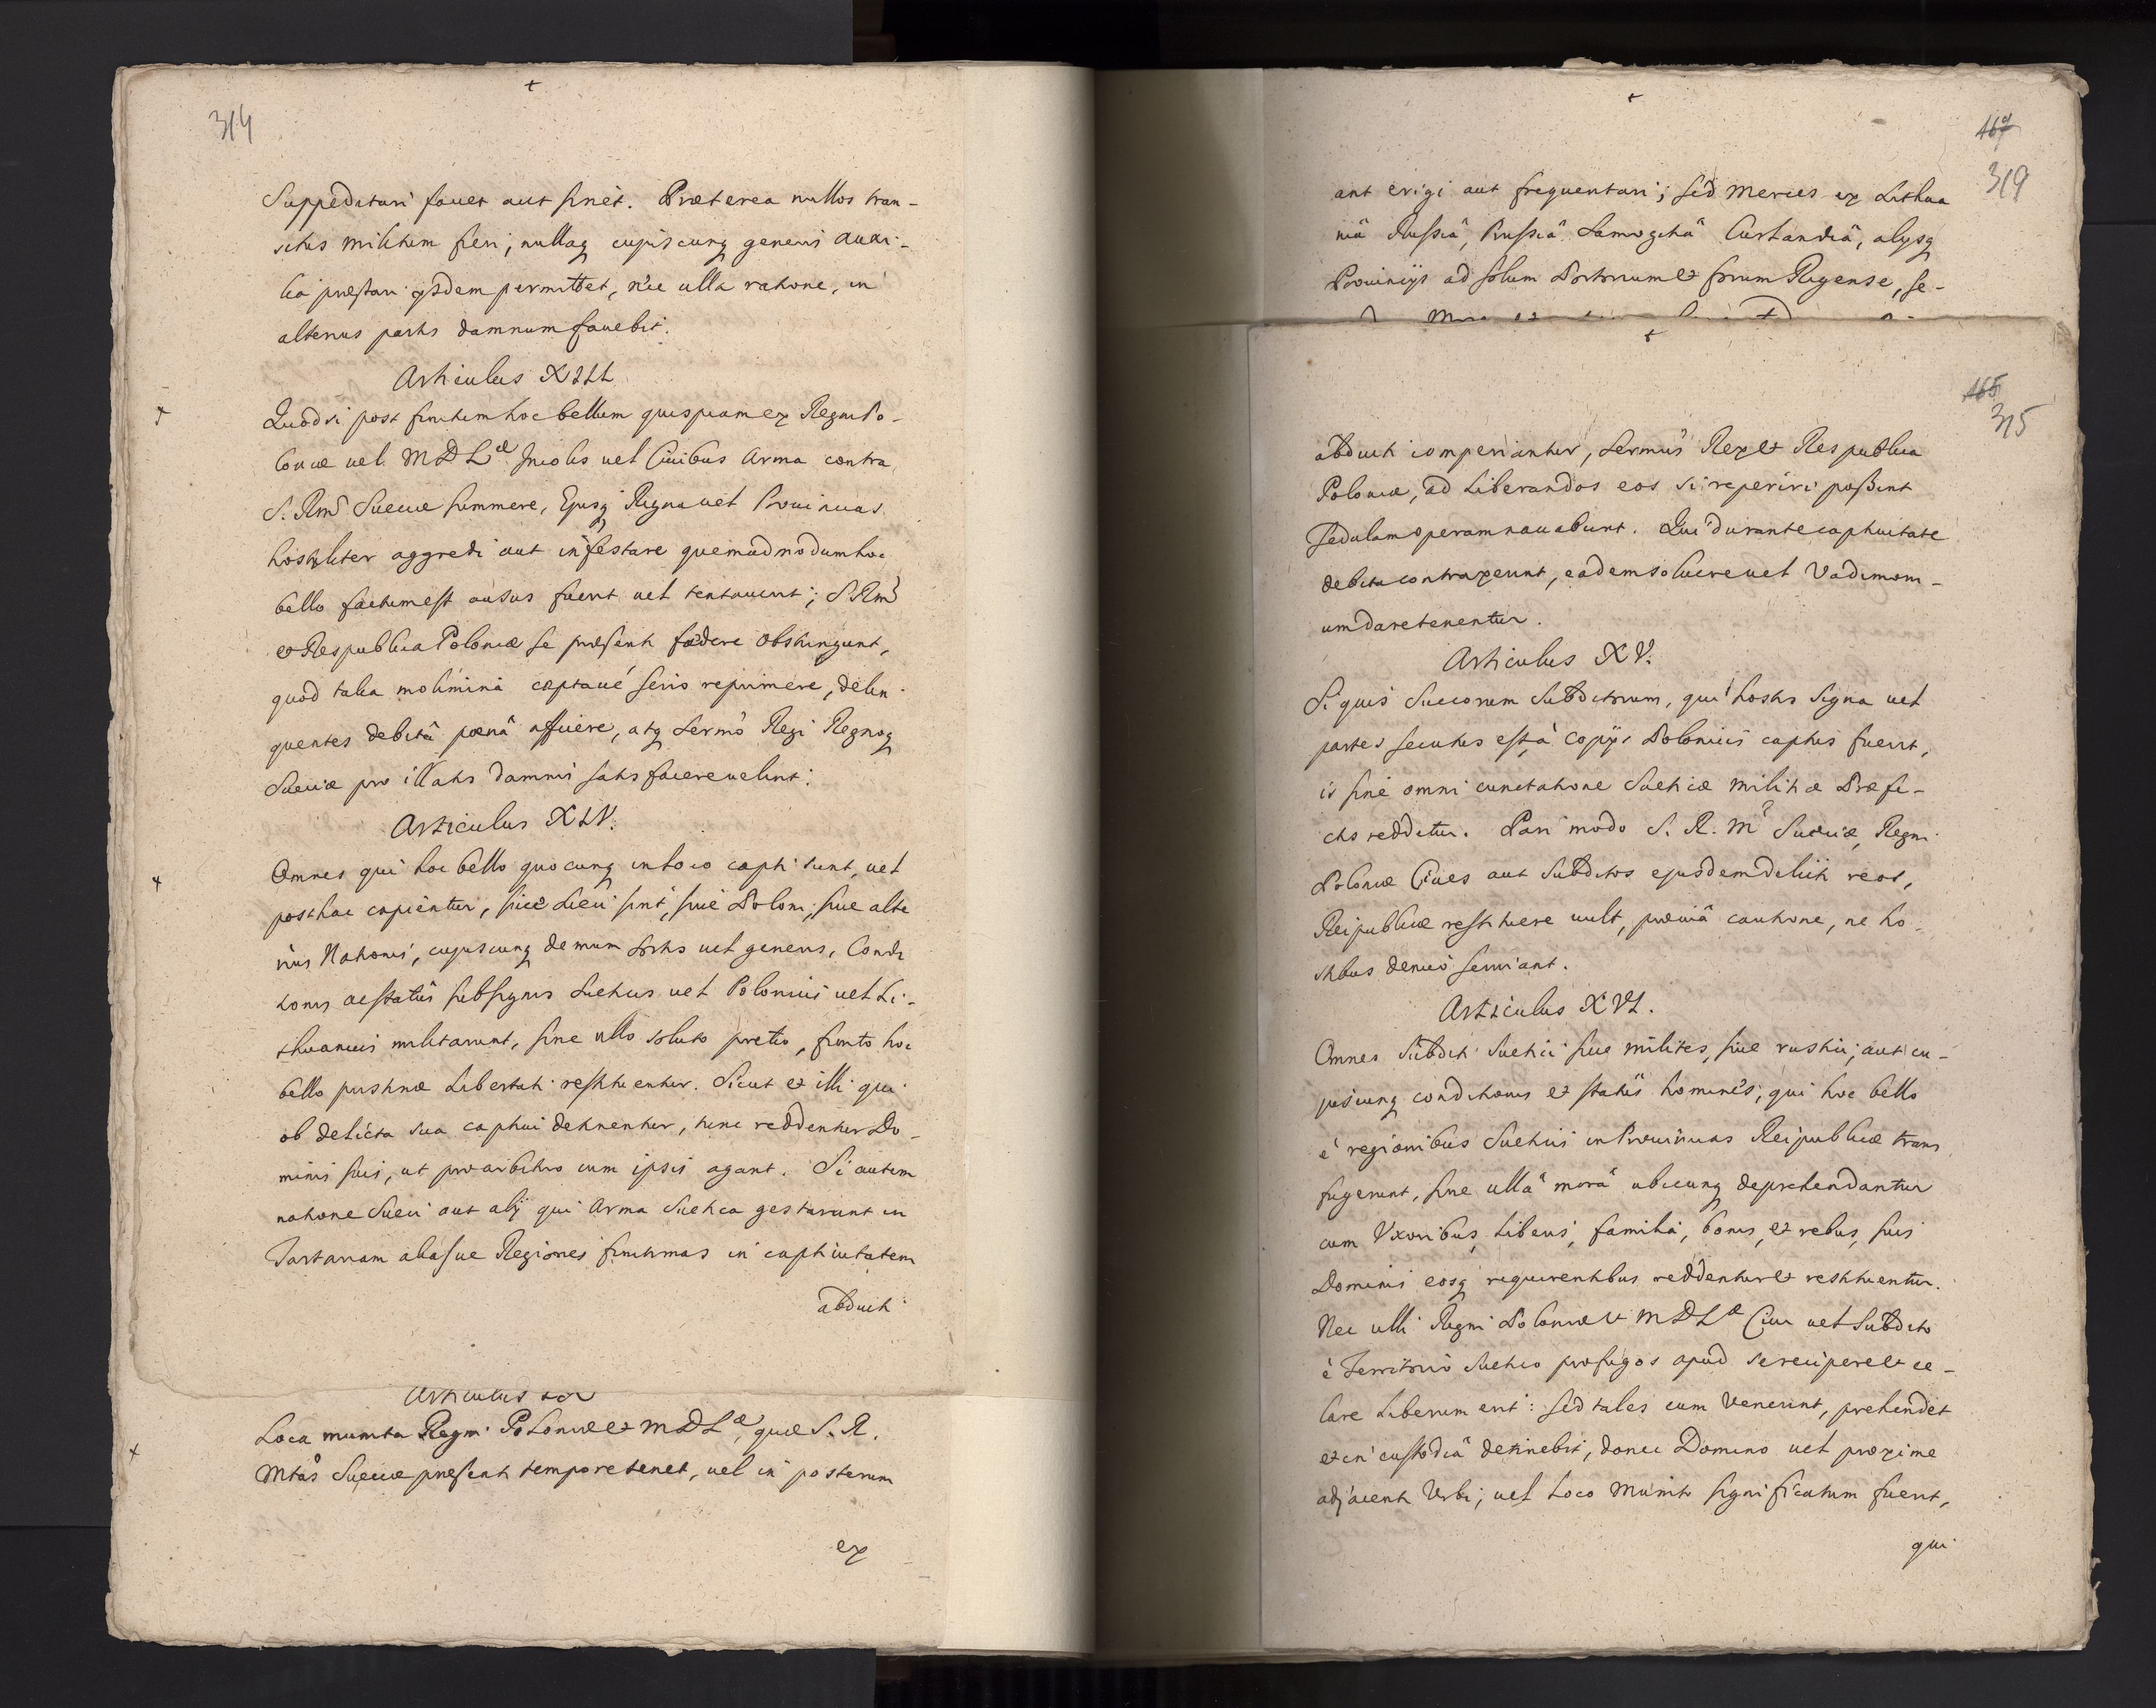 314
Suppeditari fauet aut sinet. Præterea nullos tran-
situs militum fieri, nullaq cujuscunq generis auxi-
lia præstari ijsdem permittet, nec ulla ratione, in
alterius partis damnum fauebit.
Articulus XIII
Quodsi post finitum hoc bellum quispiam ex Regni Po-
loniæ uel MDLæ Incolis uel Ciuibus Arma contra
S. Rm Sueciæ summere, Ejusq Regna uel Prouincias
hostyliter aggredi aut infestare quemadmodum hoc
bello factum est ausus fuerit uel tentauerit; S. Rm
et Respublica Poloniæ se præsenti fædere obstringunt,
quod talia molimina serio reprimere, delin-
quentes debitâ pœnâ afficere, atq Sermo Regi Regnoq
Sueciæ pro illatis damnis satisfacere uelint.
Articulus XIV.
Omnes qui hoc bello quocunq in loco capti sunt, uel
posthac capientur, siue Sueci sint, siue Poloni, siue alte
rius Nationis, cujuscunq demum sortis uel generis, Condi
tionis ac statûs sub signis Suecicis uel Polonicis uel Li-
thuanicis militarunt, sine ullo soluto pretio, finito hoc
bello pristinæ Libertati restituentur. Sicut et illi qui
ob delicta sua captiui detinentur, tunc reddentur Do-
minis suis, ut pro arbitrio cum ipsis agant. Si autem
natione Sueci aut alij qui Arma Suetica gestarunt in
Tartariam aliasue Regiones finitimas in captiuitatem
abducti
Articulus
Loca munita Regni Poloniæ et MDLæ, quæ S. R.
Mtas Sueciæ præsenti tempore tenet, uel in posterum
ex
167
319
ant erigi aut frequentari; sed merces ex Lithua
niâ Russiâ, Prussiâ Samogitiâ Curlandiâ, alijsq
Prouincijs ad solum Portorium et forum Rigense, se-
165
315
abducti comperiantur, Sermus Rex et Respublica
Poloniæ, ad Liberandos eos si reperiri possint
sedulam operam nauabunt. Qui durante captiuitate
debita contraxerint, eadem soluere uel Vadimoni-
um dare tenentur.
Articulus XV.
Si quis Suecorum Subditorum, qui hostis signa uel
partes secutus est, à copijs Polonicis captus fuerit,
is sine omni cunctatione Sueticæ militiæ Præfe-
ctis reddetur. Pari modo S. R. M Sueciæ, Regni
Poloniæ Ciues aut Subditos ejusdem delicti reos,
Reipublicæ restituere uult, præuiâ cautione, ne ho-
stibus denuò seruiant.
Articulus XVI.
Omnes Subditi Suetici siue milites, siue rustici, aut cu-
juscunq conditionis et statûs homines, qui hoc bello
è regionibus Sueticis in Prouincias Reipublicæ trans
fugerunt, sine ullâ morâ ubicunq deprehendantur
cum Vxoribus, Liberis, familia, bonis, et rebus, suis
Dominis eosq requirentibus reddentur et restituentur.
Nec ulli Regni Poloniæ et MDLæ Ciui uel Subdito
è Territorio Suetico profugos apud se recipere et ce-
lare Liberum erit: sed tales cum Venerint, prehendet
et in custodiâ detinebit, donec Domino uel proxime
adjacenti Urbi, uel Loco Munito significatum fuerit,
qui